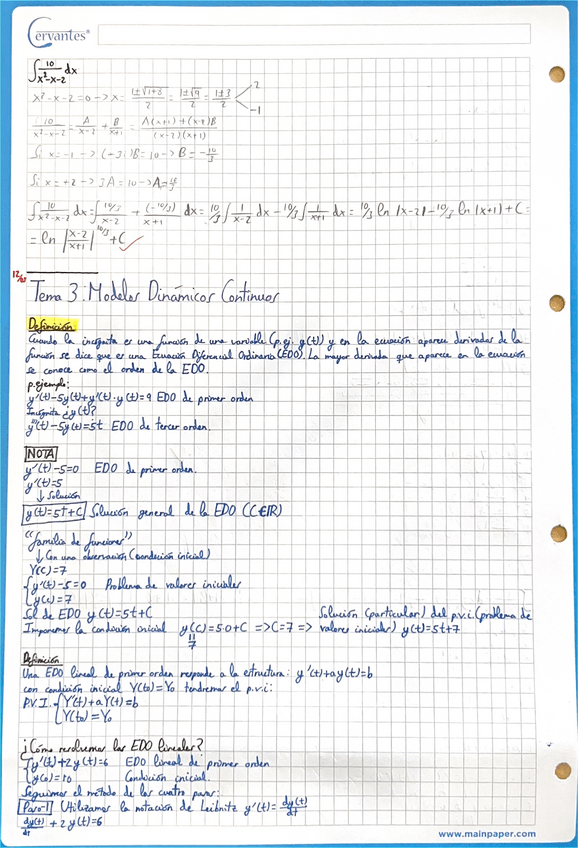 Cervantes®
∫ 10/(x²-x-2) dx
x²-x-2=0 -> x = (1±√(1+8))/2 = (1±√9)/2 = (1±3)/2 < 2, -1
10/(x²-x-2) = A/(x-2) + B/(x+1) = (A(x+1)+(x-2)B)/((x-2)(x+1))
Si x=-1 -> (-3)B=10 -> B=-10/3
Si x=+2 -> 3A=10 -> A=10/3
∫ 10/(x²-x-2) dx = ∫ (10/3)/(x-2) + (-10/3)/(x+1) dx = 10/3 ∫ 1/(x-2) dx - 10/3 ∫ 1/(x+1) dx = 10/3 ln |x-2| - 10/3 ln |x+1| + C =
= ln |(x-2)/(x+1)|^(10/3) + C ✓
Tema 3: Modelos Dinámicos Continuos
Definición
Cuando la incógnita es una función de una variable (p.ej. y(t)) y en la ecuación aparece derivadas de la
función se dice que es una Ecuación Diferencial Ordinaria (EDO). La mayor derivada que aparece en la ecuación
se conoce como el orden de la EDO.
p.ejemplo:
y'(t)-5y(t)+y'(t)·y(t)=9 EDO de primer orden
Incógnita ¿y(t)?
y'''(t)-5y(t)=5t EDO de tercer orden.
NOTA
y'(t)-5=0 EDO de primer orden.
y'(t)=5
↓ Solución
y(t)=5t+C Solución general de la EDO (C∈IR)
"familia de funciones"
↓ Con una observación (condición inicial)
Y(0)=7
{ y'(t)-5=0 Problema de valores iniciales
y(0)=7
Sol de EDO y(t)=5t+C Solución (particular) del p.v.i. (problema de
Imponemos la condición inicial y(0)=5·0+C => C=7 => valores iniciales) y(t)=5t+7
=
7
Definición
Una EDO lineal de primer orden responde a la estructura: y'(t)+ay(t)=b
con condición inicial Y(t₀)=Y₀ tendremos el p.v.i:
P.V.I. { Y'(t)+aY(t)=b
Y(t₀)=Y₀
¿Cómo resolvemos las EDO lineales?
{ y'(t)+2y(t)=6 EDO lineal de primer orden
y(0)=10 Condición inicial.
Seguimos el método de los cuatro pasos:
Paso-1 Utilizamos la notación de Leibnitz y'(t)=dy(t)/dt
dy(t)/dt + 2y(t)=6
www.mainpaper.com